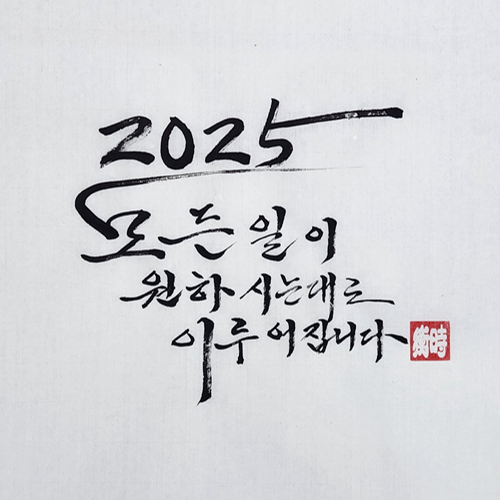 2025
모든 일이
원하시는대로
이루어집니다